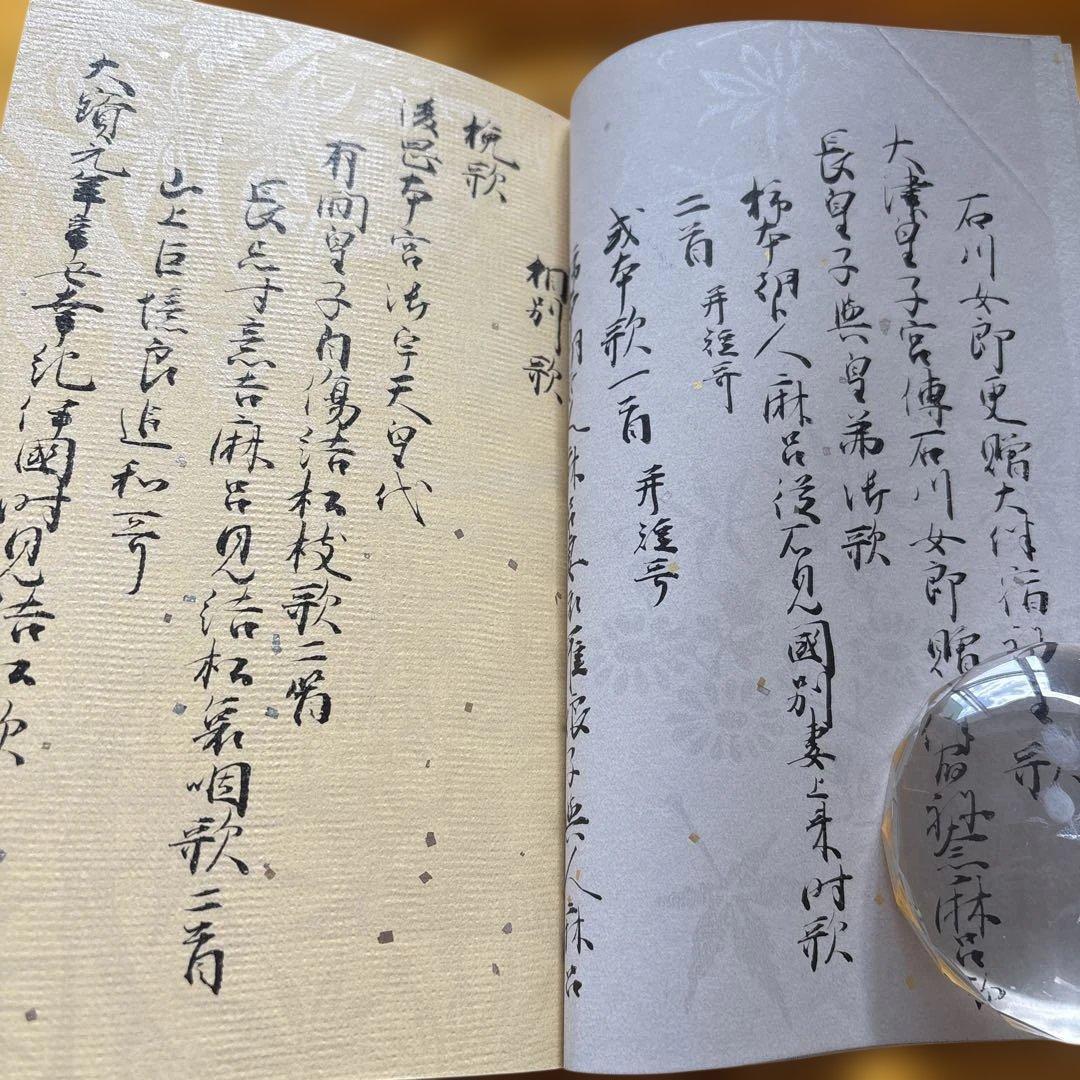 石川女郎更贈大伴宿祢
歌
大津皇子宮傅石川女郎贈
伴宿祢宿奈麻呂
長皇子與皇弟御歌
柿本朝臣人麻呂従石見國別妻上来時歌
二首 并短哥
或本歌一首 并短哥
子與人麻呂
相別歌
挽歌
後岡本宮御宇天皇代
有間皇子自傷結松枝歌二首
長忌寸意吉麻呂見結松哀咽歌二首
山上臣憶良追和一哥
大寳元年辛丑幸紀伊國時見結松歌